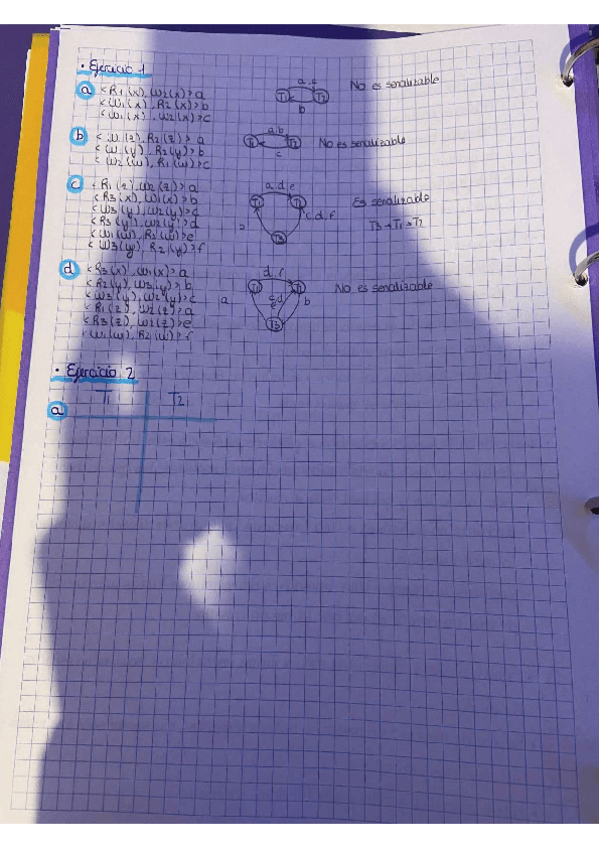 • Ejercicio 1
a <R1(x), W2(x)> a
<W1(x), R2(x)> b
<W1(x), W2(x)> c
a, c
T1 T2
b
No es serializable
b <W1(z), R2(z)> a
<W1(y), R2(y)> b
<W2(w), R1(w)> c
a, b
T1 T2
c
No es serializable
c <R1(z), W2(z)> a
<R3(x), W1(x)> b
<W3(y), W2(y)> c
<R3(y), W2(y)> d
<W1(w), R2(w)> e
<W3(y), R2(y)> f
a, d, e
T1 T2
c, d, f
T3
Es serializable
T3 → T1 → T2
d <R3(x), W1(x)> a
<R2(y), W3(y)> b
<W3(y), W2(y)> c
<R1(z), W2(z)> a
<R3(z), W2(z)> e
<W1(w), R2(w)> f
d, f
T1 T2
a b
T3
No es serializable
• Ejercicio 2
T1 T2
a